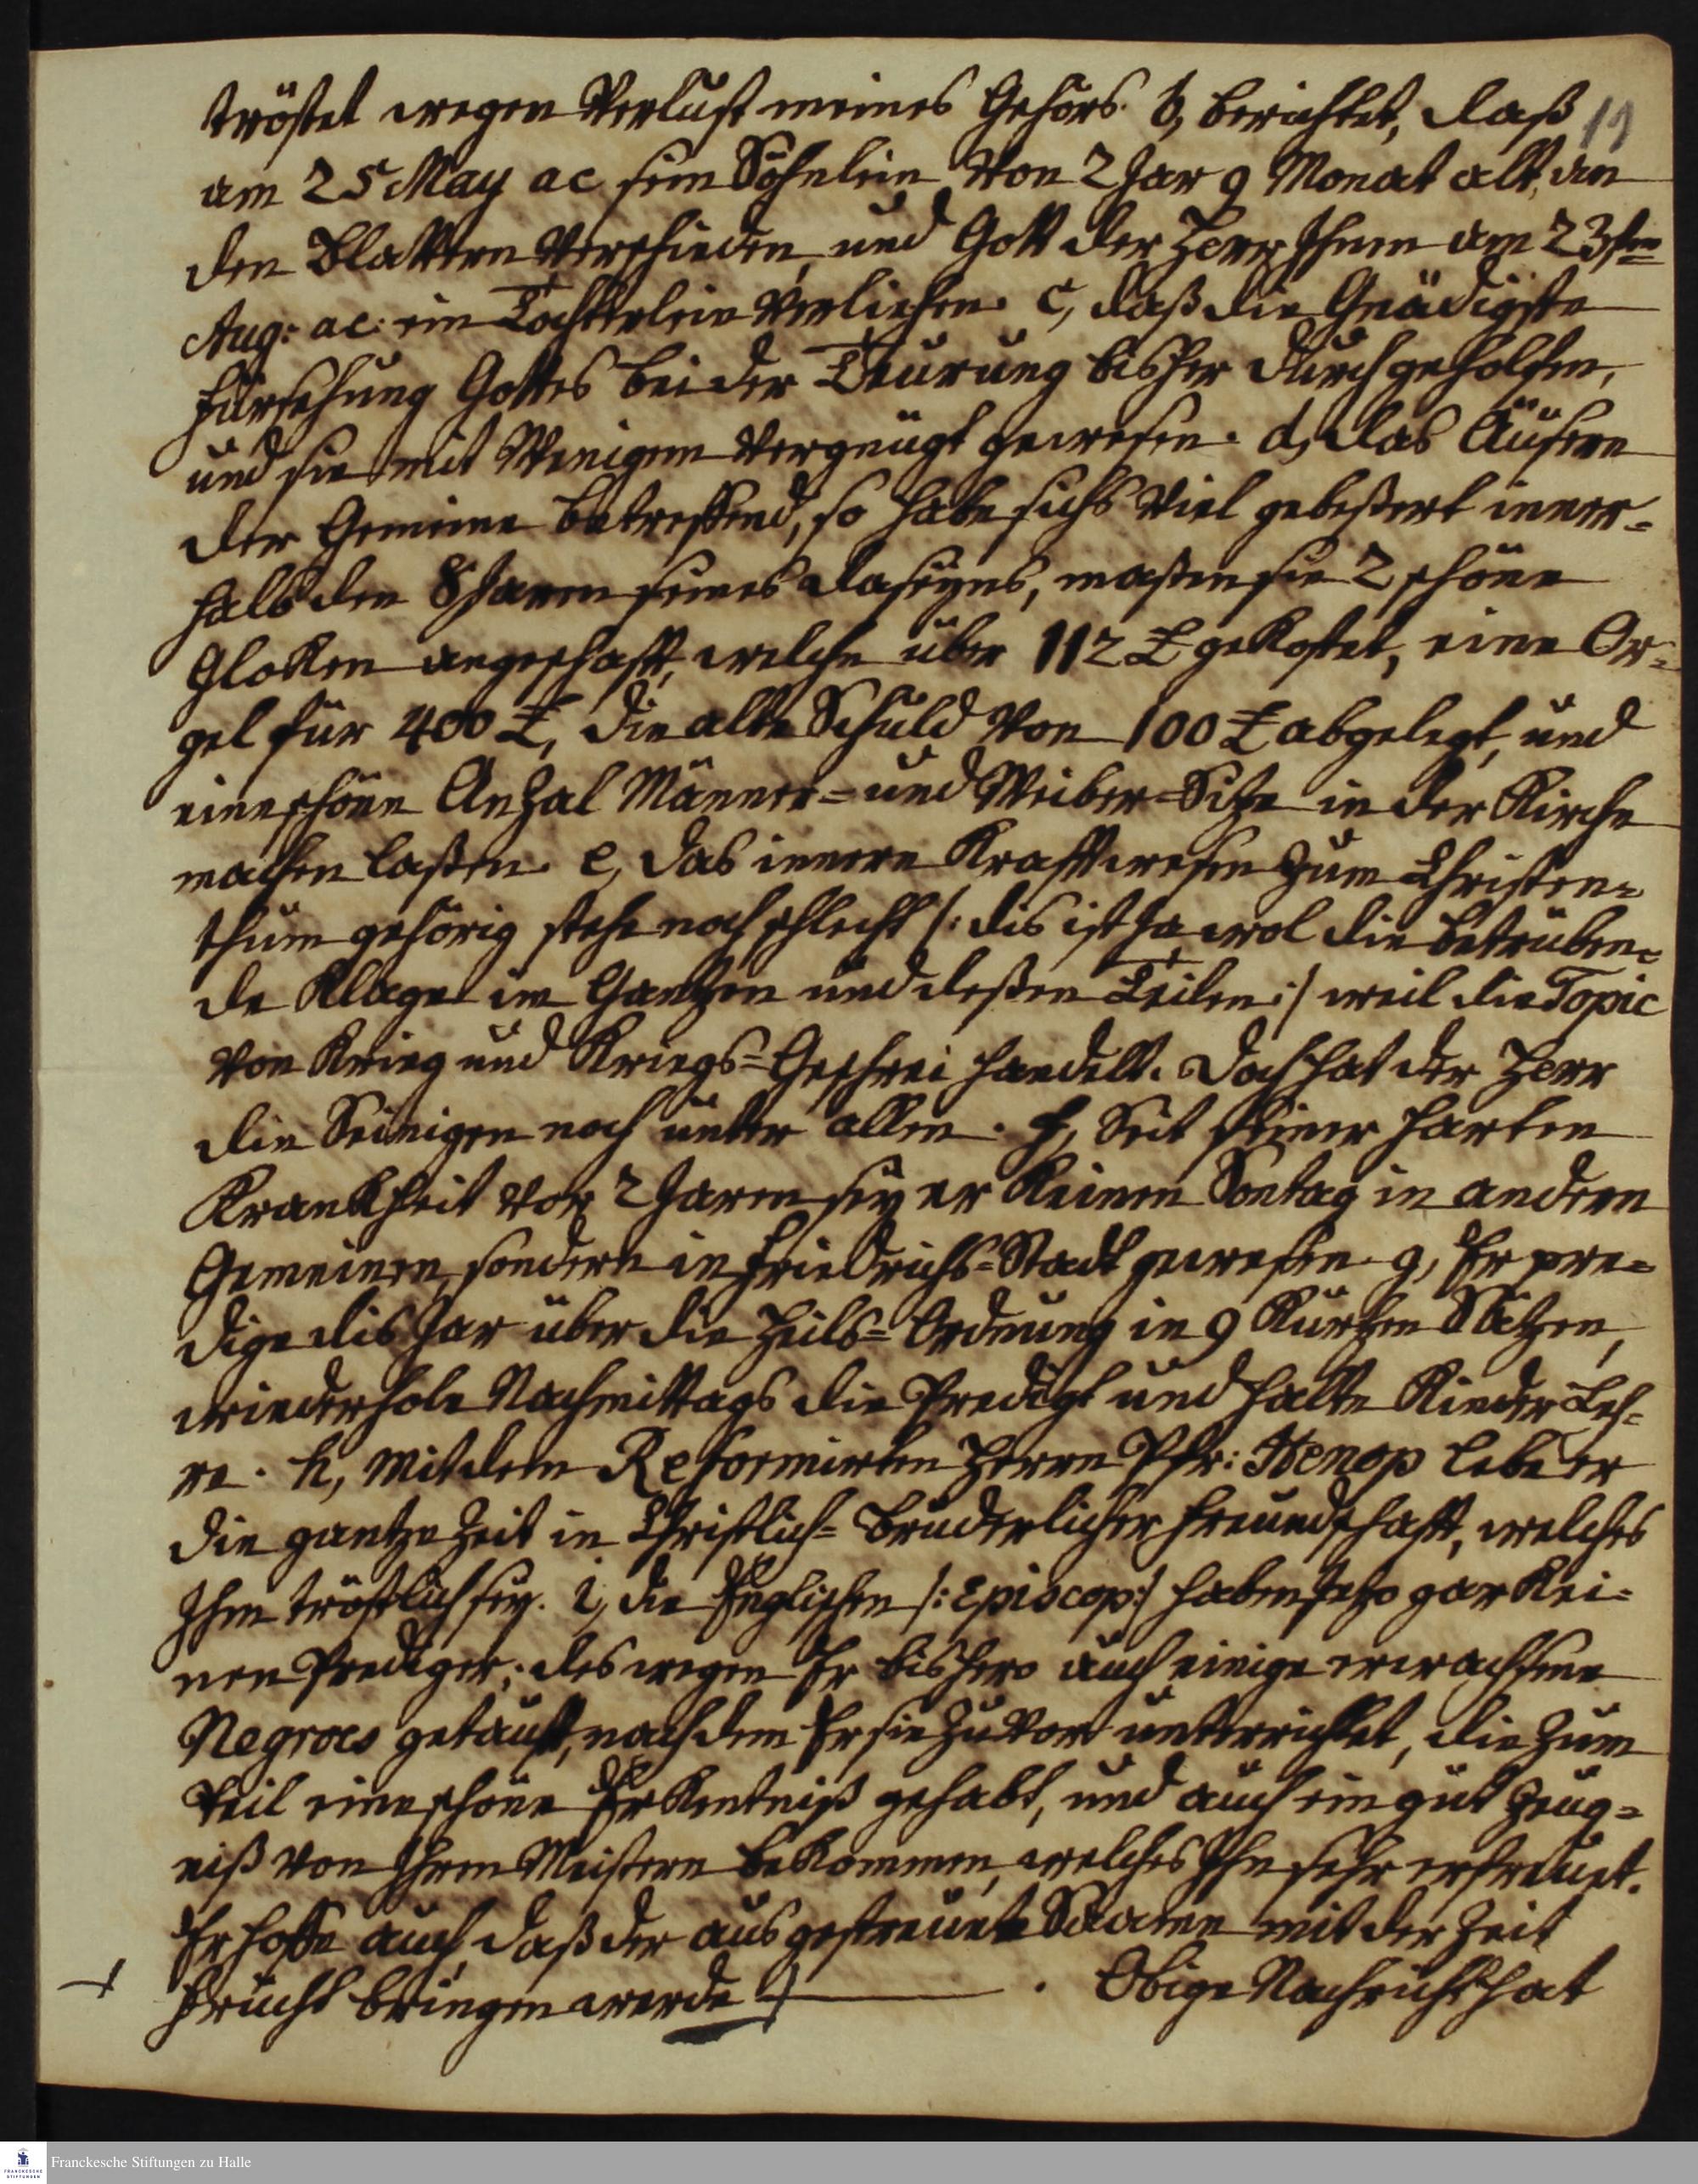 tröstet wegen Verlust meines Gehörs. b, berichtet, daß
19
am 25 May ac sein Söhnlein von 2 Jar 9 Monat alt, an
den Blattern verschieden, und Gott der Herr Ihnen am 23sten
Aug: ac: ein Töchterlein verliehen. c, daß die Gnädigste
fürsehung Gottes bei der Teurung bisher durchgeholfen,
und sie mit Wenigem vergnügt gewesen. d, das Äußere
der Gemeine betreffend, so habe sichs viel gebeßert inner=
halb den 8 Jaren seines daseyns, maßen sie 2 schöne
Gloken angeschafft, welche über 112 £ gekostet, eine Or=
gel für 400 £, die alte Schuld von 100 £ abgelegt, und
eine schöne Anzal Männer= und Weiber=Sitze in der Kirche
machen laßen. e, das innere Kraftwesen zum Christen=
thum gehörig stehe noch schlecht /: dis ist ja wol die betrüben=
de Klage im Gantzen und deßen Teilen :/ weil die Topic
von Krieg und Kriegs=Geschrei handelt. Doch hat der Herr
die Seinigen noch unter allen. f, Seit seiner harten
Krankheit vor 2 Jaren sey er keinen Sontag in andern
Gemeinen, sondern in Friedrichs=Stadt gewesen. g, Er pre=
dige dis Jar über die Heils=Ordnung in 9 kurtzen Sätzen,
wiederhole Nachmittags die Predigt und halte Kinder Leh=
re. h, mit dem Reformirten Herrn Pfr: Henop lebe er
die gantze Zeit in Christlich= brüderlicher freundschafft, welches
Ihm tröstlich sey. i, die Englischen /: Episcop :/ haben jetzo gar kei=
nen Prediger; deswegen Er bishero auch einige erwachsene
Negroes getauft, nachdem Er sie zuvor unterrichtet, die zum
teil eine schöne Erkentniß gehabt, und auch ein gut Zeug=
niß von Ihren Meistern bekommen, welches Ihn sehr erfreuet.
Er hoffe auch, daß der ausgestreuete Saamen mit der Zeit
frucht bringen werde. Obige Nachricht hat
Franckesche Stiftungen zu Halle
FRANCKESCHE STIFTUNGEN